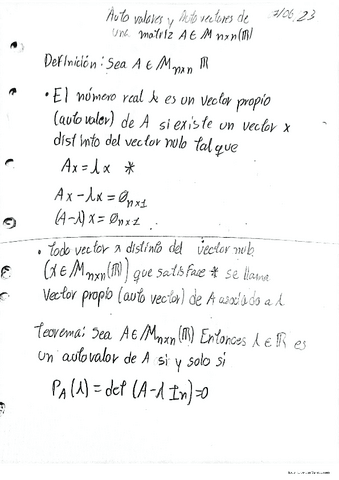 Auto valores y Autovectores de
una matriz A ∈ Mnxn(ℝ)
7/06/23
Definición: Sea A ∈ Mnxn ℝ
• El número real λ es un vector propio
(auto valor) de A si existe un vector x
distinto del vector nulo tal que
Ax = λx *
Ax - λx = Ø nx1
(A-λ) x = Ø nx1
• Todo vector x distinto del vector nulo
(x ∈ Mnxn(ℝ)) que satisface * se llama
Vector propio (auto vector) de A asociado a λ.
Teorema: Sea A ∈ Mnxn(ℝ) Entonces λ ∈ ℝ es
un autovalor de A si y solo si
PA(λ) = det (A-λ In) = 0